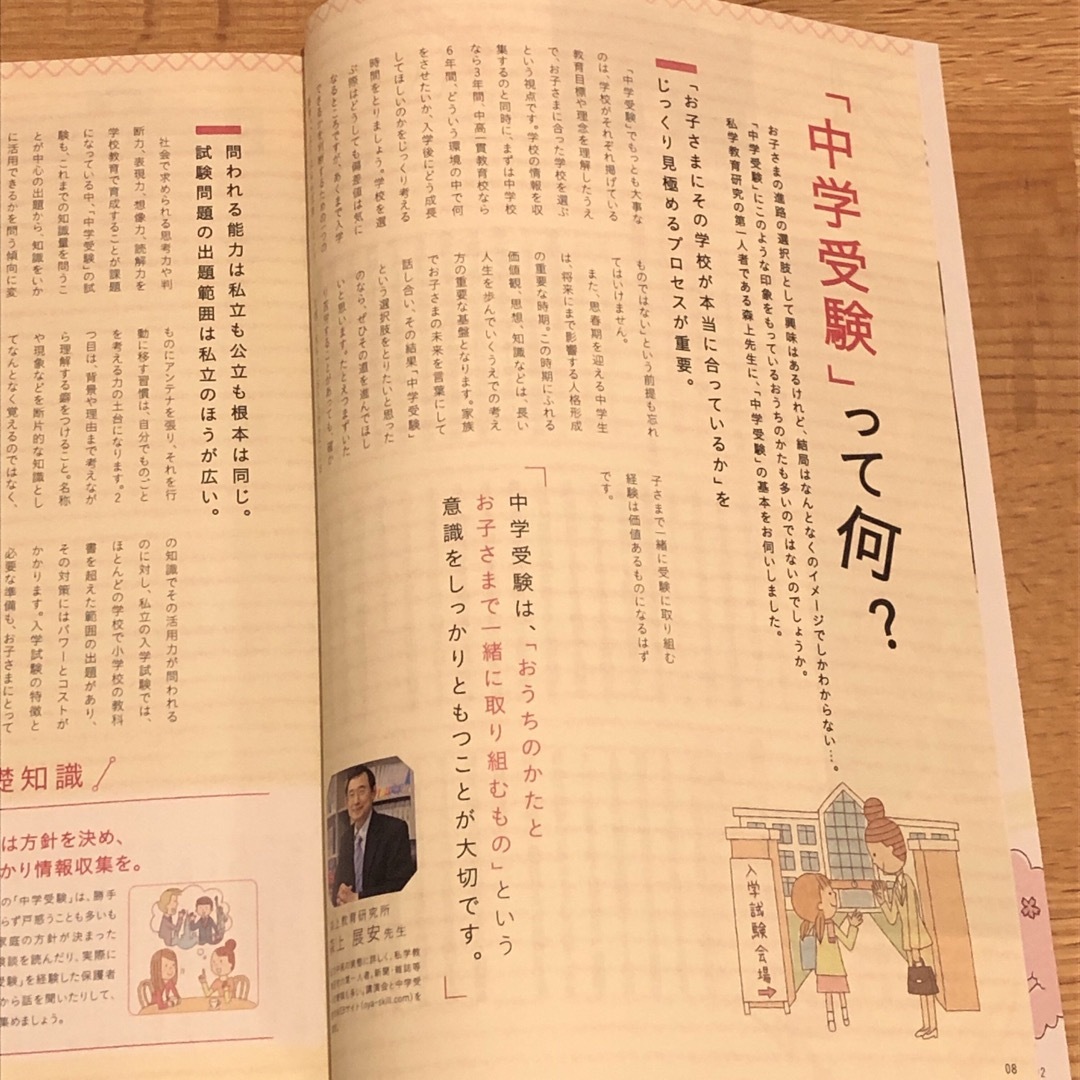 「中学受験」って何?
お子さまの進路の選択肢として興味はあるけれど、結局はなんとなくのイメージでしかわからない…。
「中学受験」にこのような印象をもっているおうちのかたも多いのではないのでしょうか。
私学教育研究の第一人者である森上先生に、「中学受験」の基本をお伺いしました。
「お子さまにその学校が本当に合っているか」を
じっくり見極めるプロセスが重要。
「中学受験」でもっとも大事な
のは、学校がそれぞれ掲げている
教育目標や理念を理解したうえ
で、お子さまに合った学校を選ぶ
という視点です。学校の情報を収
集するのと同時に、まずは中学校
なら3年間、中高一貫教育校なら
6年間、どういう環境の中で何
をさせたいか、入学後にどう成長
してほしいのかをじっくり考える
時間をとりましょう。学校を選
ぶ際はどうしても偏差値は気に
なるところですが、あくまで入学
ものではない」という前提も忘れ
てはいけません。
また、思春期を迎える中学生
は、将来にまで影響する人格形成
の重要な時期。この時期にふれる
価値観、思想、知識などは、長い
人生を歩んでいくうえでの考え
方の重要な基盤となります。家族
でお子さまの未来を言葉にして
話し合い、その結果「中学受験」
という選択肢をとりたいと思った
のなら、ぜひその道を進んでほし
いと思います。たとえつまずいた
子さまで一緒に受験に取り組む
経験は価値あるものになるはず
です。
中学受験は、「おうちのかたと
お子さまで一緒に取り組むもの」という
意識をしっかりともつことが大切です。
上教育研究所
上 展安先生
入学試験会場
08
2
問われる能力は私立も公立も根本は同じ。
試験問題の出題範囲は私立のほうが広い。
社会で求められる思考力や判
断力、表現力、想像力、読解力を
学校教育で育成することが課題
になっている中、「中学受験」の試
験も、これまでの知識量を問うこ
とが中心の出題から、知識をいか
に活用できるかを問う傾向に変
ものにアンテナを張り、それを行
動に移す習慣は、自分でものごと
を考える力の土台になります。2
つ目は、背景や理由まで考えなが
ら理解する癖をつけること。名称
や現象などを断片的な知識とし
てなんとなく覚えるのではなく、
の知識でその活用力が問われる
のに対し、私立の入学試験では、
ほとんどの学校で小学校の教科
書を超えた範囲の出題があり、
その対策にはパワーとコストが
かかります。入学試験の特徴と
必要な準備も、お子さまにとって
礎知識
は方針を決め、
かり情報収集を。
の「中学受験」は、勝手
らず戸惑うことも多いも
家庭の方針が決まった
験談を読んだり、実際に
受験」を経験した保護者
から話を聞いたりして、
集めましょう。